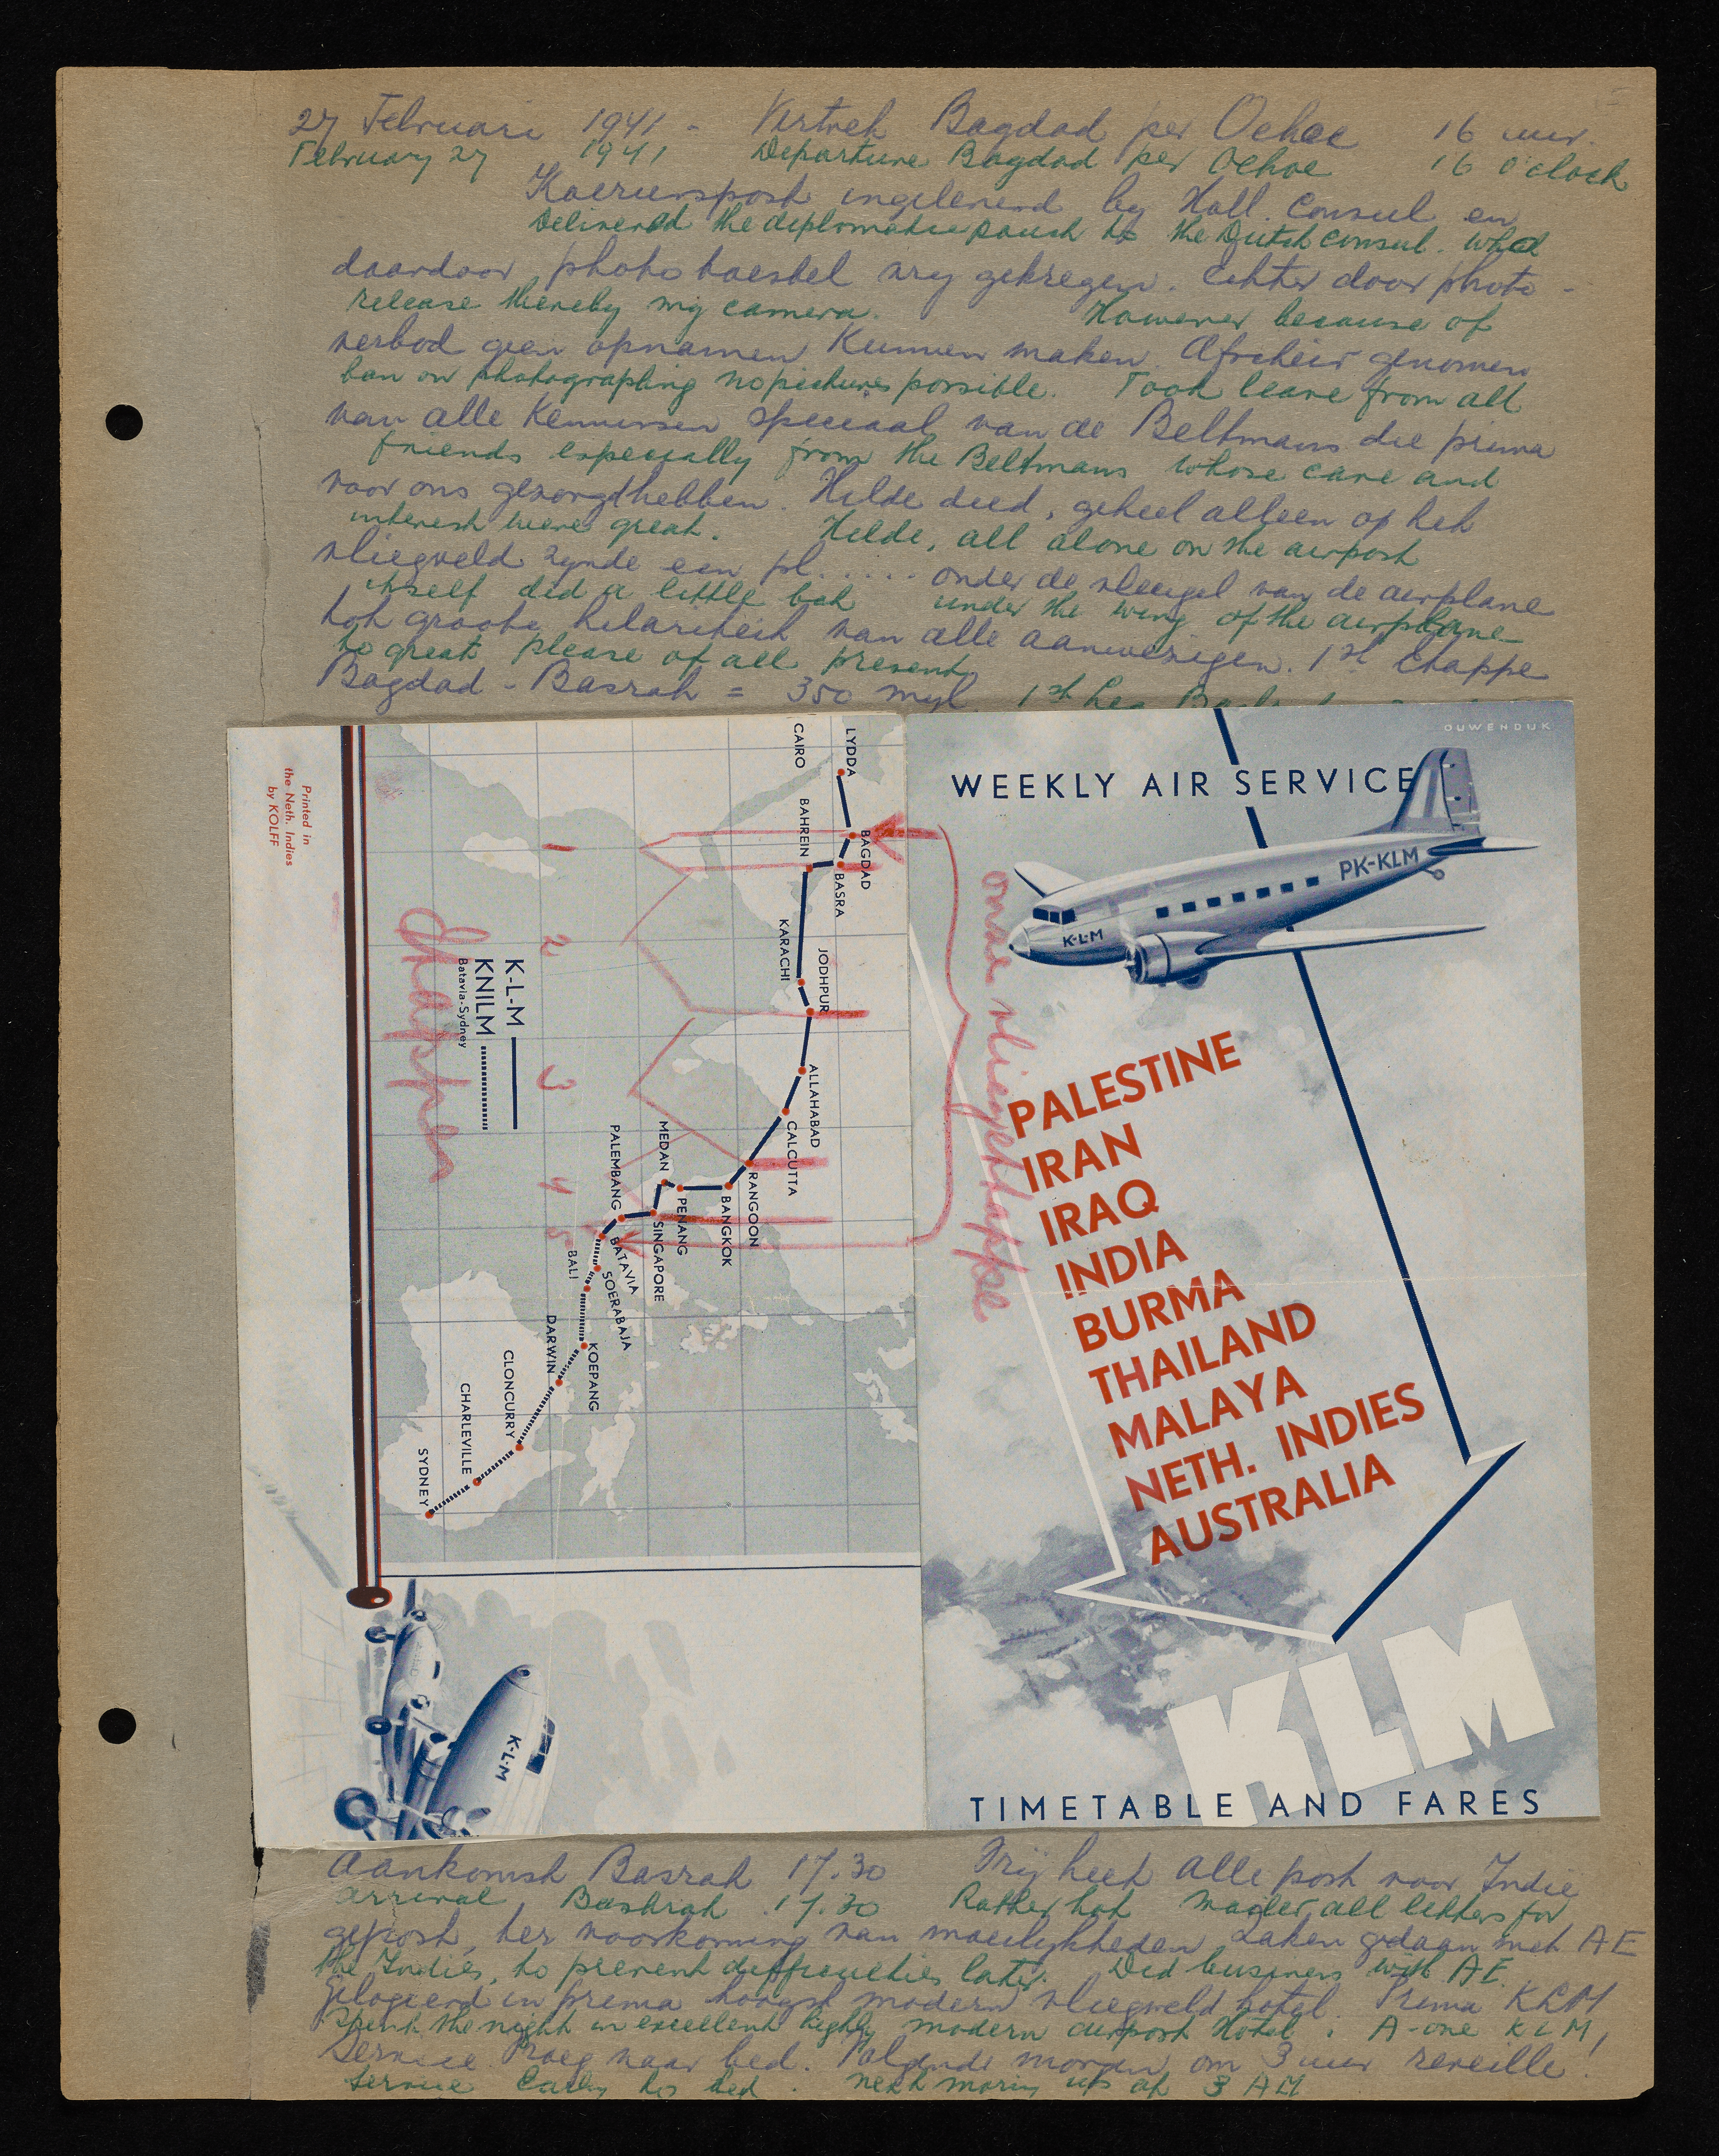 27 Februari 1941 - Vertrek Bagdad per Oehoe 16 uur.
February 27 1941 Departure Bagdad per Oehoe 16 o'clock
Koerierspost ingeleverd by Holl. Consul en
Delivered the diplomatic pouch to the Dutch consul. Who
daardoor phototoestel vry gekregen. Echter door photo-
release thereby my camera. However because of
verbod geen opnamen kunnen maken. Afscheid genomen
ban on photographing no pictures possible. Took leave from all
van alle kennissen speciaal van de Beltmans die prima
friends especially from the Beltmans whose care and
voor ons gezorgd hebben. Hilde deed, geheel alleen op het
interest were great. Hilde, all alone on the airport
vliegveld zynde een pl..... onder de vleugel van de airplane
itself did a little bah under the wing of the airplane
tot groote hilariteit van alle aanwezigen. 1st Etappe
to great please of all present
Bagdad - Basrah = 350 myl. 1st Leg
Printed in
the Neth. Indies
by KOLFF
LYDDA
CAIRO
BAGDAD
BAHREIN
BASRA
KARACHI
JODHPUR
ALLAHABAD
CALCUTTA
RANGOON
BANGKOK
PENANG
MEDAN
SINGAPORE
PALEMBANG
BATAVIA
SOERABAJA
BALI
KOEPANG
DARWIN
CLONCURRY
CHARLEVILLE
SYDNEY
K-L-M
KNILM
Batavia-Sydney
1
2
3
4
5
Etappes
onze vliegetappe
K-L-M
OUWENDIJK
WEEKLY AIR SERVICE
PK-KLM
K-L-M
PALESTINE
IRAN
IRAQ
INDIA
BURMA
THAILAND
MALAYA
NETH. INDIES
AUSTRALIA
KLM
TIMETABLE AND FARES
Aankomst Basrah 17.30 Vrij heet alle post voor Indie
arrival Bashrah 17.30 Rather hot all letters for
gepost, ter voorkoming van moeilykheden. Zaken gedaan met AE
the Indies, to prevent difficulties later. Did business with AE.
Gelogeerd in prima hoogst modern vliegveld hotel. Prima KLM
Spent the night in excellent highly modern airport Hotel. A-one KLM,
Service. Vroeg naar bed. Volgende morgen om 3 uur reveille!
service Early to bed. next morning up at 3 AM